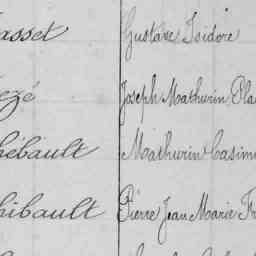 asset Gustave Isidore
ezé Joseph Mathurin Pla
hébault Mathurin Casim
hibault Pierre Jean Marie Fr